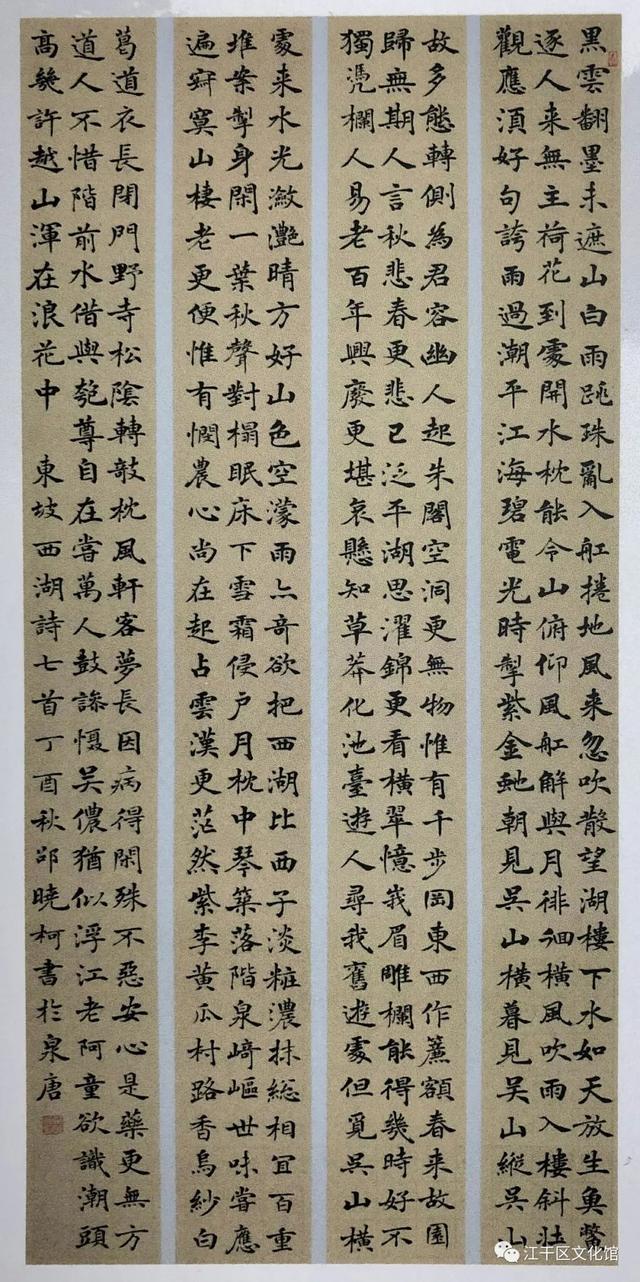 黑雲翻墨未遮山白雨跳珠亂入舡捲地風来忽吹散望湖樓下水如天放生魚鱉
逐人来無主荷花到處開水枕能令山俯仰風舡解與月徘徊橫風吹雨入樓斜壯
觀應湏好句誇雨過潮平江海碧電光時掣紫金虵朝見吳山橫暮見吳山縱吳山
故多態轉側為君容幽人起朱閣空洞更無物惟有千步岡東西作簾額春来故園
歸無期人言秋悲春更悲已泛平湖思濯錦更看橫翠憶峩眉雕欄能得幾時好不
獨凭欄人易老百年興廢更堪哀懸知草莽化池臺遊人尋我舊遊處但覓吳山橫
處来水光瀲灧晴方好山色空濛雨亦奇欲把西湖比西子淡粧濃抹総相宜百重
堆案掣身閑一葉秋聲對榻眠床下雪霜侵户月枕中琴築落階泉崎嶇世味嘗應
遍寂寞山棲老更便惟有憫農心尚在起占雲漢更茫然紫李黄瓜村路香烏紗白
葛道衣長閉門野寺松陰轉敧枕風軒客夢長因病得閑殊不惡安心是藥更無方
道人不惜階前水借與匏尊自在嘗萬人鼓譟慑吳儂猶似浮江老阿童欲識潮頭
高幾許越山渾在浪花中 東坡西湖詩七首丁酉秋邵曉柯書於泉唐
江干区文化馆